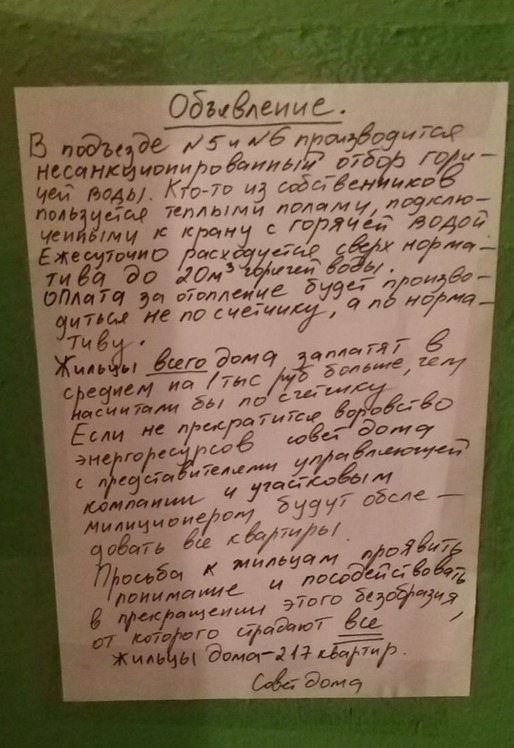 Объявление.
В подъезде №5 и №6 производится
несанкционированный отбор горя-
чей воды. Кто-то из собственников
пользуется теплыми полами, подклю-
ченными к крану с горячей водой.
Ежесуточно расходуется сверх норма-
тива до 20м³ горячей воды.
Оплата за отопление будет произво-
диться не по счетчику, а по норма-
тиву.
Жильцы всего дома заплатят в
среднем на 1 тыс руб больше, чем
насчитали бы по счетчику
Если не прекратится воровство
энергоресурсов совет дома
с представителями управляющей
компании и участковым
милиционером будут обсле-
довать все квартиры.
Просьба к жильцам проявить
понимание и пособействовать
в прекращении этого безобразия,
от которого страдают все
жильцы дома - 217 квартир.
Совет дома